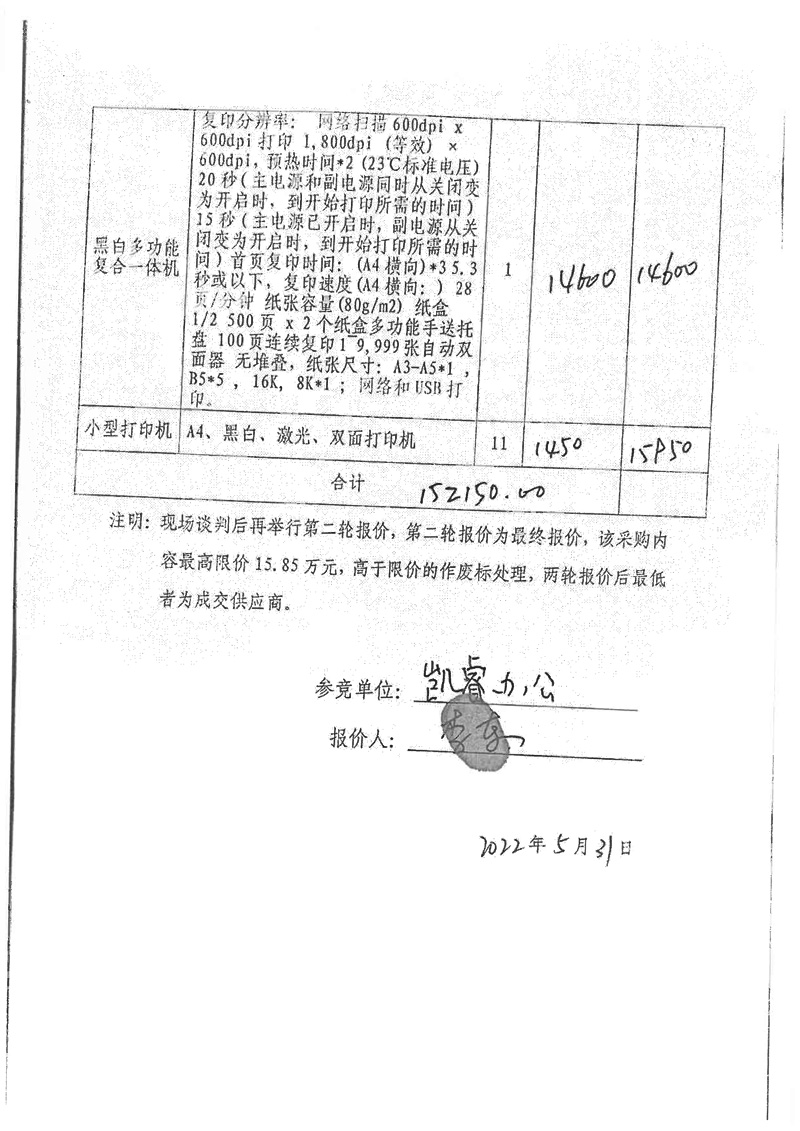 复印分辨率： 网络扫描600dpi x
600dpi 打印 1,800dpi (等效) ×
600dpi, 预热时间*2 (23℃标准电压)
20 秒(主电源和副电源同时从关闭变
为开启时，到开始打印所需的时间)
15 秒(主电源已开启时，副电源从关
闭变为开启时，到开始打印所需的时
间) 首页复印时间：(A4 横向)*3 5.3
秒或以下，复印速度(A4 横向：) 28
页/分钟 纸张容量(80g/m2) 纸盒
1/2 500页 x 2个纸盒多功能手送托
盘 100页连续复印1 9,999张自动双
面器 无堆叠，纸张尺寸：A3-A5*1 ,
B5*5 , 16K, 8K*1 ; 网络和 USB 打
印。
黑白多功能
复合一体机
1 14600 14600
小型打印机 A4、黑白、激光、双面打印机 11 1450 15950
合计 152150.00
注明：现场谈判后再举行第二轮报价，第二轮报价为最终报价，该采购内
容最高限价 15.85 万元，高于限价的作废标处理，两轮报价后最低
者为成交供应商。
参竞单位：凯睿办公
报价人：李
2022年5月31日